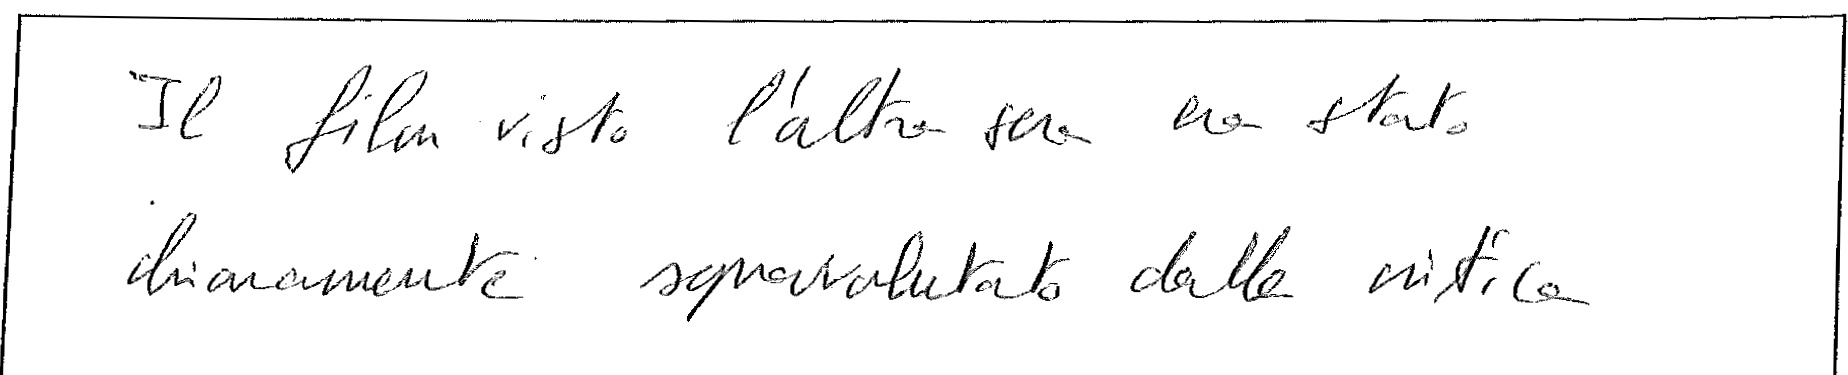 Il film visto l'altra sera era stato
chiaramente sopravvalutato dalla critica